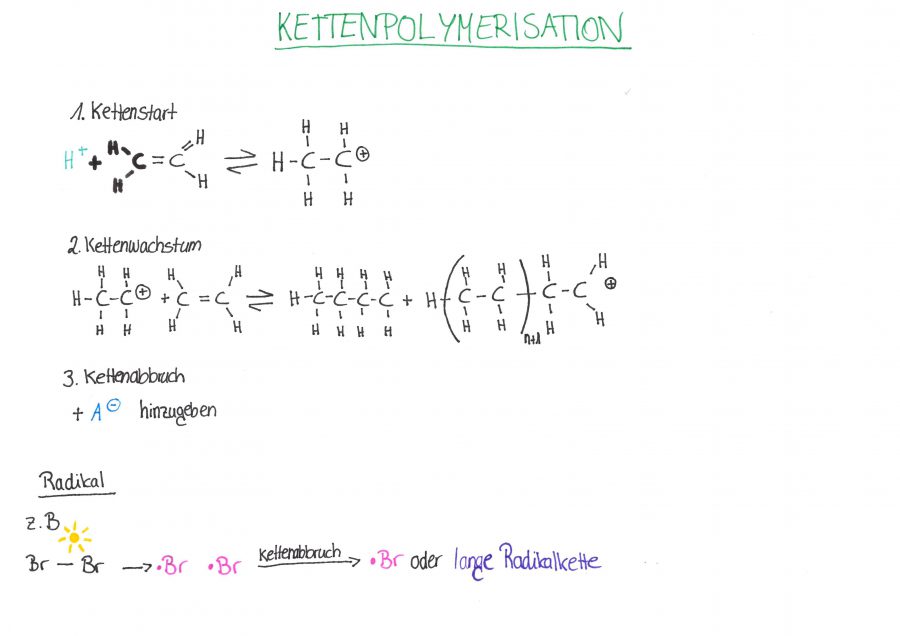 KETTENPOLYMERISATION
1. Kettenstart
H H
H⁺ + H C = C H ⇌ H-C-C⊕
H H H H
2. Kettenwachstum
H H H H H H H H H H H H
H-C-C⊕ + C = C ⇌ H-C-C-C-C + H(C-C)C-C ⊕
H H H H H H H H H H n+1 H H
3. Kettenabbruch
+ A⊖ hinzugeben
Radikal
z.B
Br — Br → •Br •Br Kettenabbruch → •Br oder lange Radikalkette